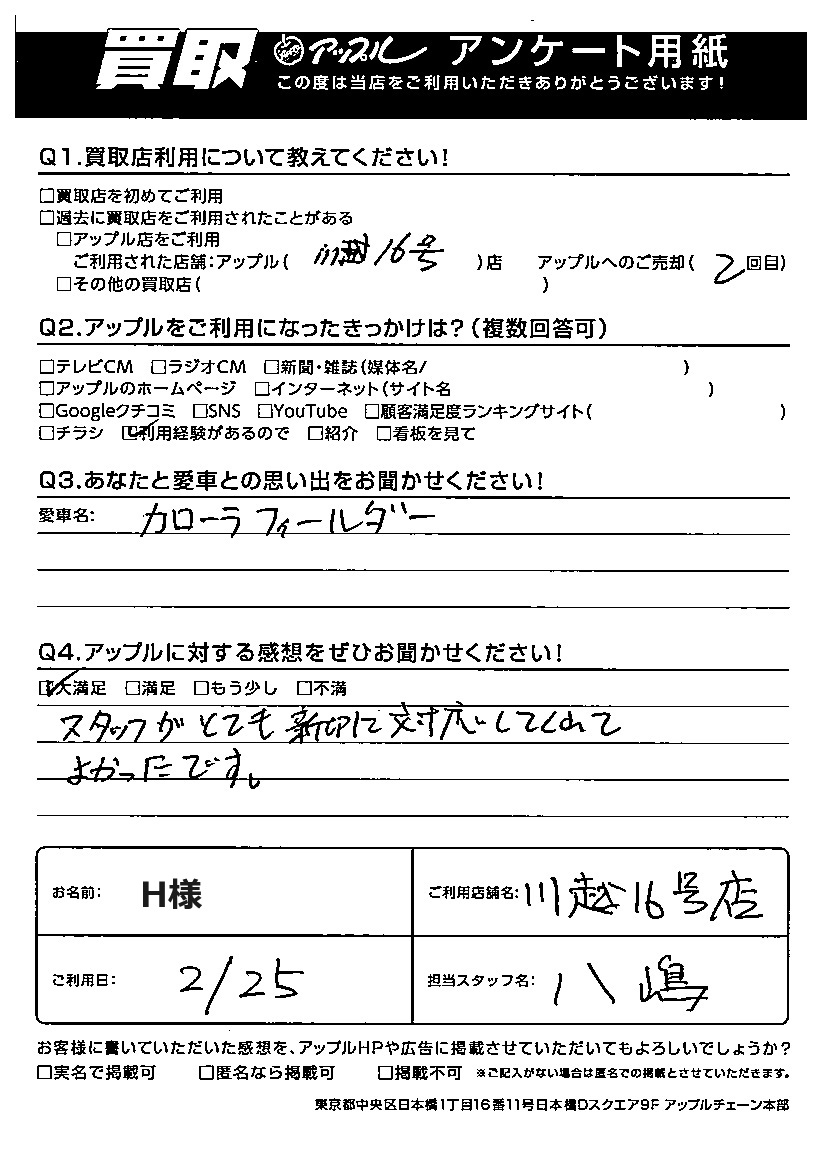 買取 アップル アンケート用紙
この度は当店をご利用いただきありがとうございます!
Q1.買取店利用について教えてください!
□買取店を初めてご利用
□過去に買取店をご利用されたことがある
□アップル店をご利用
ご利用された店舗:アップル( 川越16号 )店 アップルへのご売却( 2回目)
□その他の買取店( )
Q2.アップルをご利用になったきっかけは?(複数回答可)
□テレビCM □ラジオCM □新聞・雑誌(媒体名/ )
□アップルのホームページ □インターネット(サイト名 )
□Googleクチコミ □SNS □YouTube □顧客満足度ランキングサイト( )
□チラシ ☑利用経験があるので □紹介 □看板を見て
Q3.あなたと愛車との思い出をお聞かせください!
愛車名: カローラフィールダー
Q4.アップルに対する感想をぜひお聞かせください!
☑大満足 □満足 □もう少し □不満
スタッフがとても親切に対応してくれて
よかったです。
お名前: H様 ご利用店舗名: 川越16号店
ご利用日: 2/25 担当スタッフ名: 八嶋
お客様に書いていただいた感想を、アップルHPや広告に掲載させていただいてもよろしいでしょうか?
□実名で掲載可 □匿名なら掲載可 □掲載不可 ※ご記入がない場合は匿名での掲載とさせていただきます。
東京都中央区日本橋1丁目16番11号日本橋Dスクエア9F アップルチェーン本部